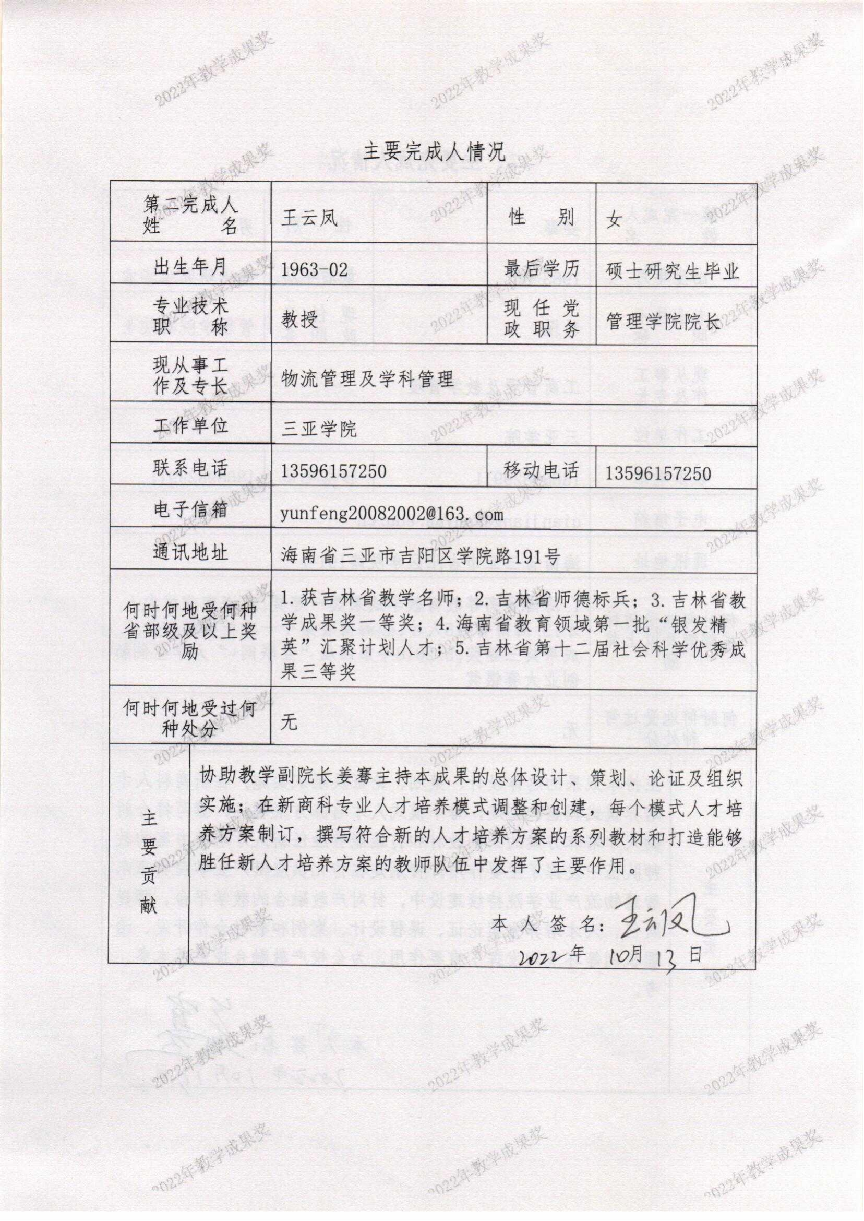 主要完成人情况
第二完成人
姓 名
王云凤
性 别
女
出生年月
1963-02
最后学历
硕士研究生毕业
专业技术
职 称
教授
现 任 党
政 职 务
管理学院院长
现从事工
作及专长
物流管理及学科管理
工作单位
三亚学院
联系电话
13596157250
移动电话
13596157250
电子信箱
yunfeng20082002@163.com
通讯地址
海南省三亚市吉阳区学院路191号
何时何地受何种
省部级及以上奖
励
1.获吉林省教学名师；2.吉林省师德标兵；3.吉林省教
学成果奖一等奖；4.海南省教育领域第一批“银发精
英”汇聚计划人才；5.吉林省第十二届社会科学优秀成
果三等奖
何时何地受过何
种处分
无
主
要
贡
献
协助教学副院长姜骞主持本成果的总体设计、策划、论证及组织
实施；在新商科专业人才培养模式调整和创建，每个模式人才培
养方案制订，撰写符合新的人才培养方案的系列教材和打造能够
胜任新人才培养方案的教师队伍中发挥了主要作用。
本 人 签 名：王云凤
2022 年 10月 13 日
2022年教学成果奖